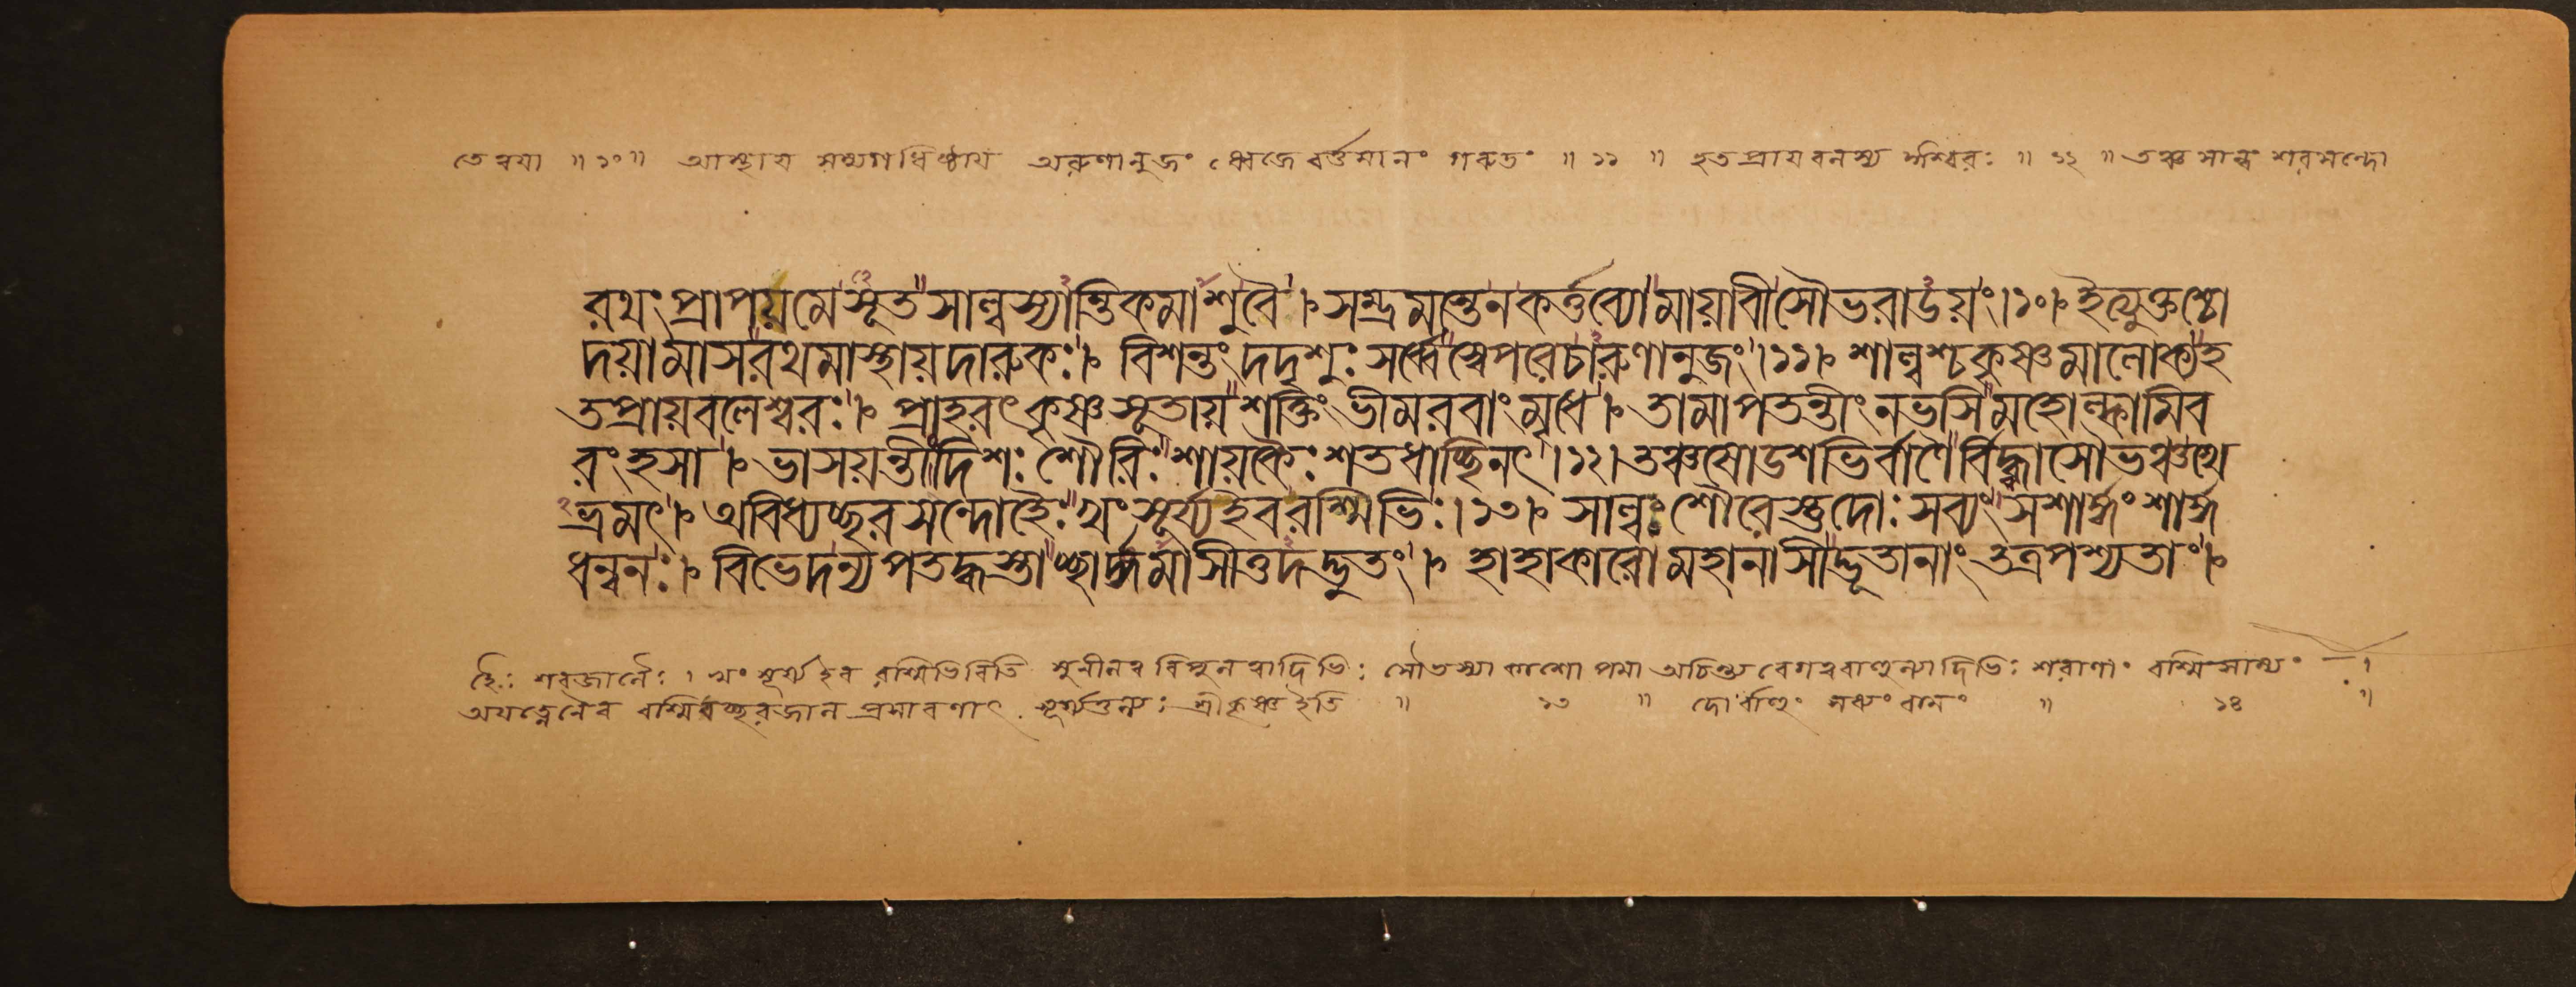 তেবয়া ॥ ১০ ॥ আস্থায় সম্যগধিষ্ঠায় অরুণানুজং ধ্বজে বর্ত্তমানং গরুড়ং ॥ ১১ ॥ হতপ্রায়বলস্য ঈশ্বরঃ ॥ ১২ ॥ তঞ্চ সাল্বং শরসন্দো
রথং প্রাপয় মে সূত সাল্বস্যান্তিকমাশু বৈ । সম্ভ্রমস্তে ন কর্ত্তব্যো মায়াবী সৌভরাডয়ং । ১০ । ইত্যুক্তশ্চো
দয়ামাস রথমাস্থায় দারুকঃ । বিশন্তং দদৃশুঃ সর্ব্বে স্বে পরে চারুণানুজং । ১১ । শাল্বশ্চ কৃষ্ণমালোক্য হ
তপ্রায়বলেশ্বরঃ । প্রাহরৎ কৃষ্ণসূতায় শক্তিং ভীমরবাং মৃধে । তামাপতন্তীং নভসি মহোল্কামিব
রংহসা । ভাসয়ন্তীং দিশঃ শৌরিঃ শায়কৈঃ শতধাচ্ছিনৎ । ১২ । তঞ্চ ষোডশভির্বাণৈর্বিদ্ধ্বা সৌভঞ্চ খে
ভ্রমৎ । অবিধ্যচ্ছরসন্দোহৈঃ খং সূর্য্য ইব রশ্মিভিঃ । ১৩ । সাল্বঃ শৌরেস্তু দোঃ সব্যং সশার্ঙ্গং শার্ঙ্গ
ধন্বনঃ । বিভেদ ন্যপতদ্ধস্তাচ্ছার্ঙ্গমাসীত্তদদ্ভুতং । হাহাকারো মহানাসীদ্ভূতানাং তত্র পশ্যতাং ।
হৈঃ শরজালৈঃ । খং সূর্য্য ইব রশ্মিভিরিতি বাণানাং শরাণাং রশ্মিসাম্যং ।
অযত্নেনৈব রশ্মিবচ্ছরজাল প্রসারণাৎ সূর্য্যতুল্যঃ শ্রীকৃষ্ণ ইতি ॥ ১৩ ॥ দোর্বাহুং সব্যং বামং ॥ ১৪ ॥